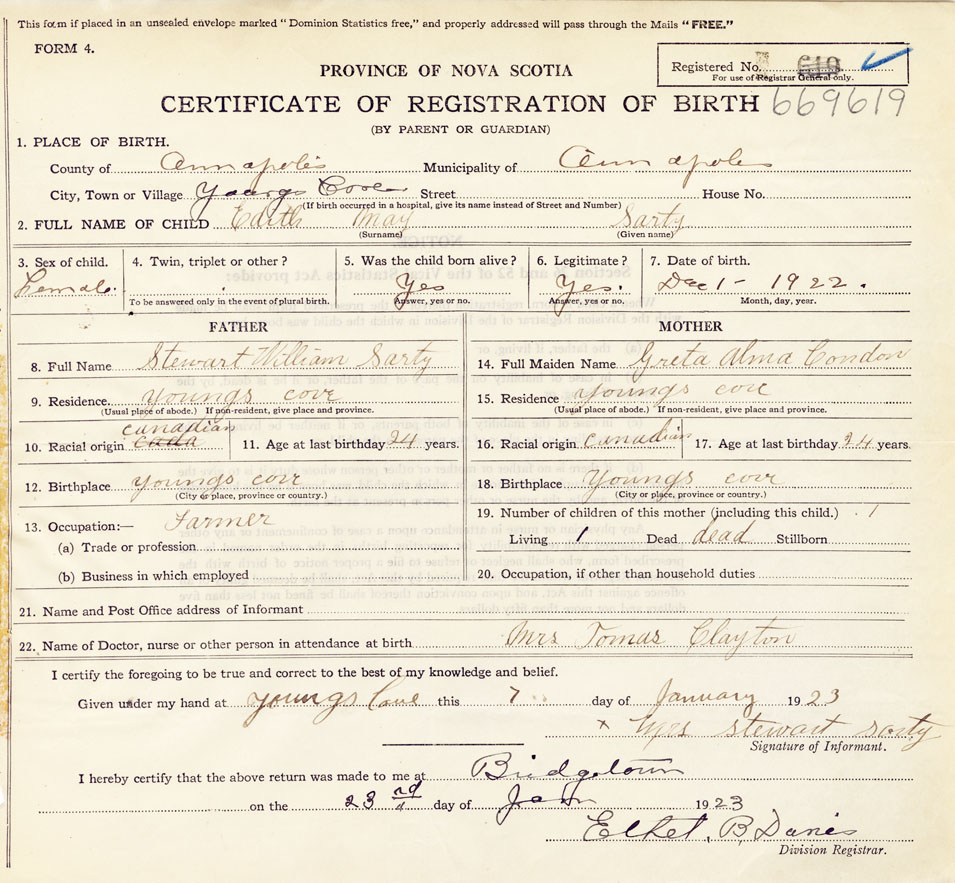 This form if placed in an unsealed envelope marked "Dominion Statistics free," and properly addressed will pass through the Mails "FREE."
FORM 4.
Registered No. 619
For use of Registrar General only.
PROVINCE OF NOVA SCOTIA
CERTIFICATE OF REGISTRATION OF BIRTH 669619
(BY PARENT OR GUARDIAN)
1. PLACE OF BIRTH.
County of Annapolis Municipality of Annapolis
City, Town or Village Youngs Cove Street House No.
(If birth occurred in a hospital, give its name instead of Street and Number)
2. FULL NAME OF CHILD Edith May Sarty
(Surname) (Given name)
3. Sex of child. 4. Twin, triplet or other? 5. Was the child born alive? 6. Legitimate? 7. Date of birth.
Female. Yes Yes. Dec 1 - 1922.
To be answered only in the event of plural birth. Answer, yes or no. Answer, yes or no. Month, day, year.
FATHER MOTHER
8. Full Name Stewart William Sarty 14. Full Maiden Name Greta Alma Condon
9. Residence. Youngs cove 15. Residence Youngs cove
(Usual place of abode.) If non-resident, give place and province. (Usual place of abode.) If non-resident, give place and province.
canadian
10. Racial origin cada 11. Age at last birthday 34 years. 16. Racial origin canadian 17. Age at last birthday 34 years.
12. Birthplace youngs cove 18. Birthplace youngs cove
(City or place, province or country.) (City or place, province or country.)
13. Occupation:— Farmer 19. Number of children of this mother (including this child.) 1
(a) Trade or profession Living 1 Dead dead Stillborn
(b) Business in which employed 20. Occupation, if other than household duties
21. Name and Post Office address of Informant
22. Name of Doctor, nurse or other person in attendance at birth Mrs Tomas Clayton
I certify the foregoing to be true and correct to the best of my knowledge and belief.
Given under my hand at youngs Cove this 7 day of January 1923
x Mrs stewart sarty
Signature of Informant.
I hereby certify that the above return was made to me at Bridgetown
on the 23 rd day of Jan 1923
Ethel. B. Davis
Division Registrar.